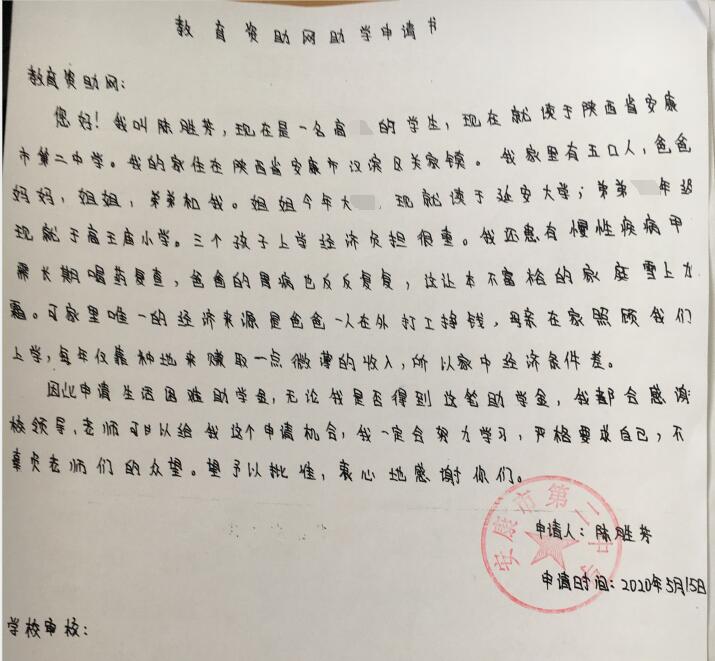 教育资助网助学申请书
教育资助网:
您好!我叫陈胜芳,现在是一名高 的学生,现在就读于陕西省安康
市第二中学。我的家住在陕西省安康市汉滨区关家镇。我家里有五口人,爸爸
妈妈,姐姐,弟弟和我。姐姐今年大 ,现就读于延安大学;弟弟 年级
现就于高王庙小学。三个孩子上学经济负担很重。我还患有慢性疾病甲
需长期喝药复查,爸爸的胃病也反反复复,这让本不富裕的家庭雪上加
霜。可家里唯一的经济来源是爸爸一人在外打工挣钱,母亲在家照顾我们
上学,每年仅靠种地来赚取一点微薄的收入,所以家中经济条件差。
因此申请生活困难助学金,无论我是否得到这笔助学金,我都会感谢
校领导、老师可以给我这个申请机会,我一定会努力学习,严格要求自己,不
辜负老师们的众望。望予以批准,衷心地感谢你们。
安康市第二中学
申请人:陈胜芳
申请日时间:2020年5月15日
学校审核: